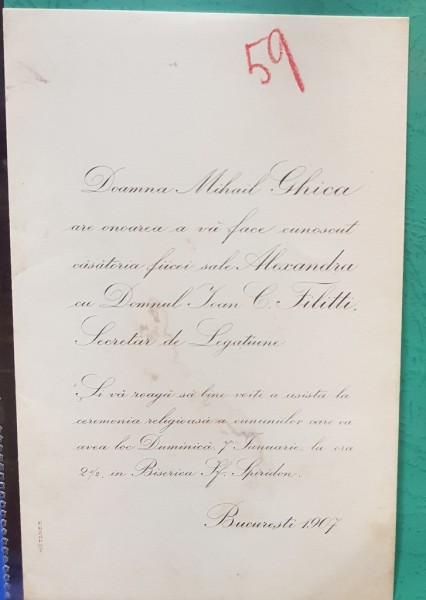 59
Doamna Mihail Ghica
are onoarea a vă face cunoscut
căsătoria fiicei sale Alexandra
cu Domnul Ioan C. Filitti,
Secretar de Legatiune
Și vă roagă să bine voițĭ a asista la
ceremonia religioasă a cununiilor care va
avea loc Duminică, 7 Ianuarie, la ora
2 1/2, in Biserica Sf. Spiridon.
Bucuresti 1907